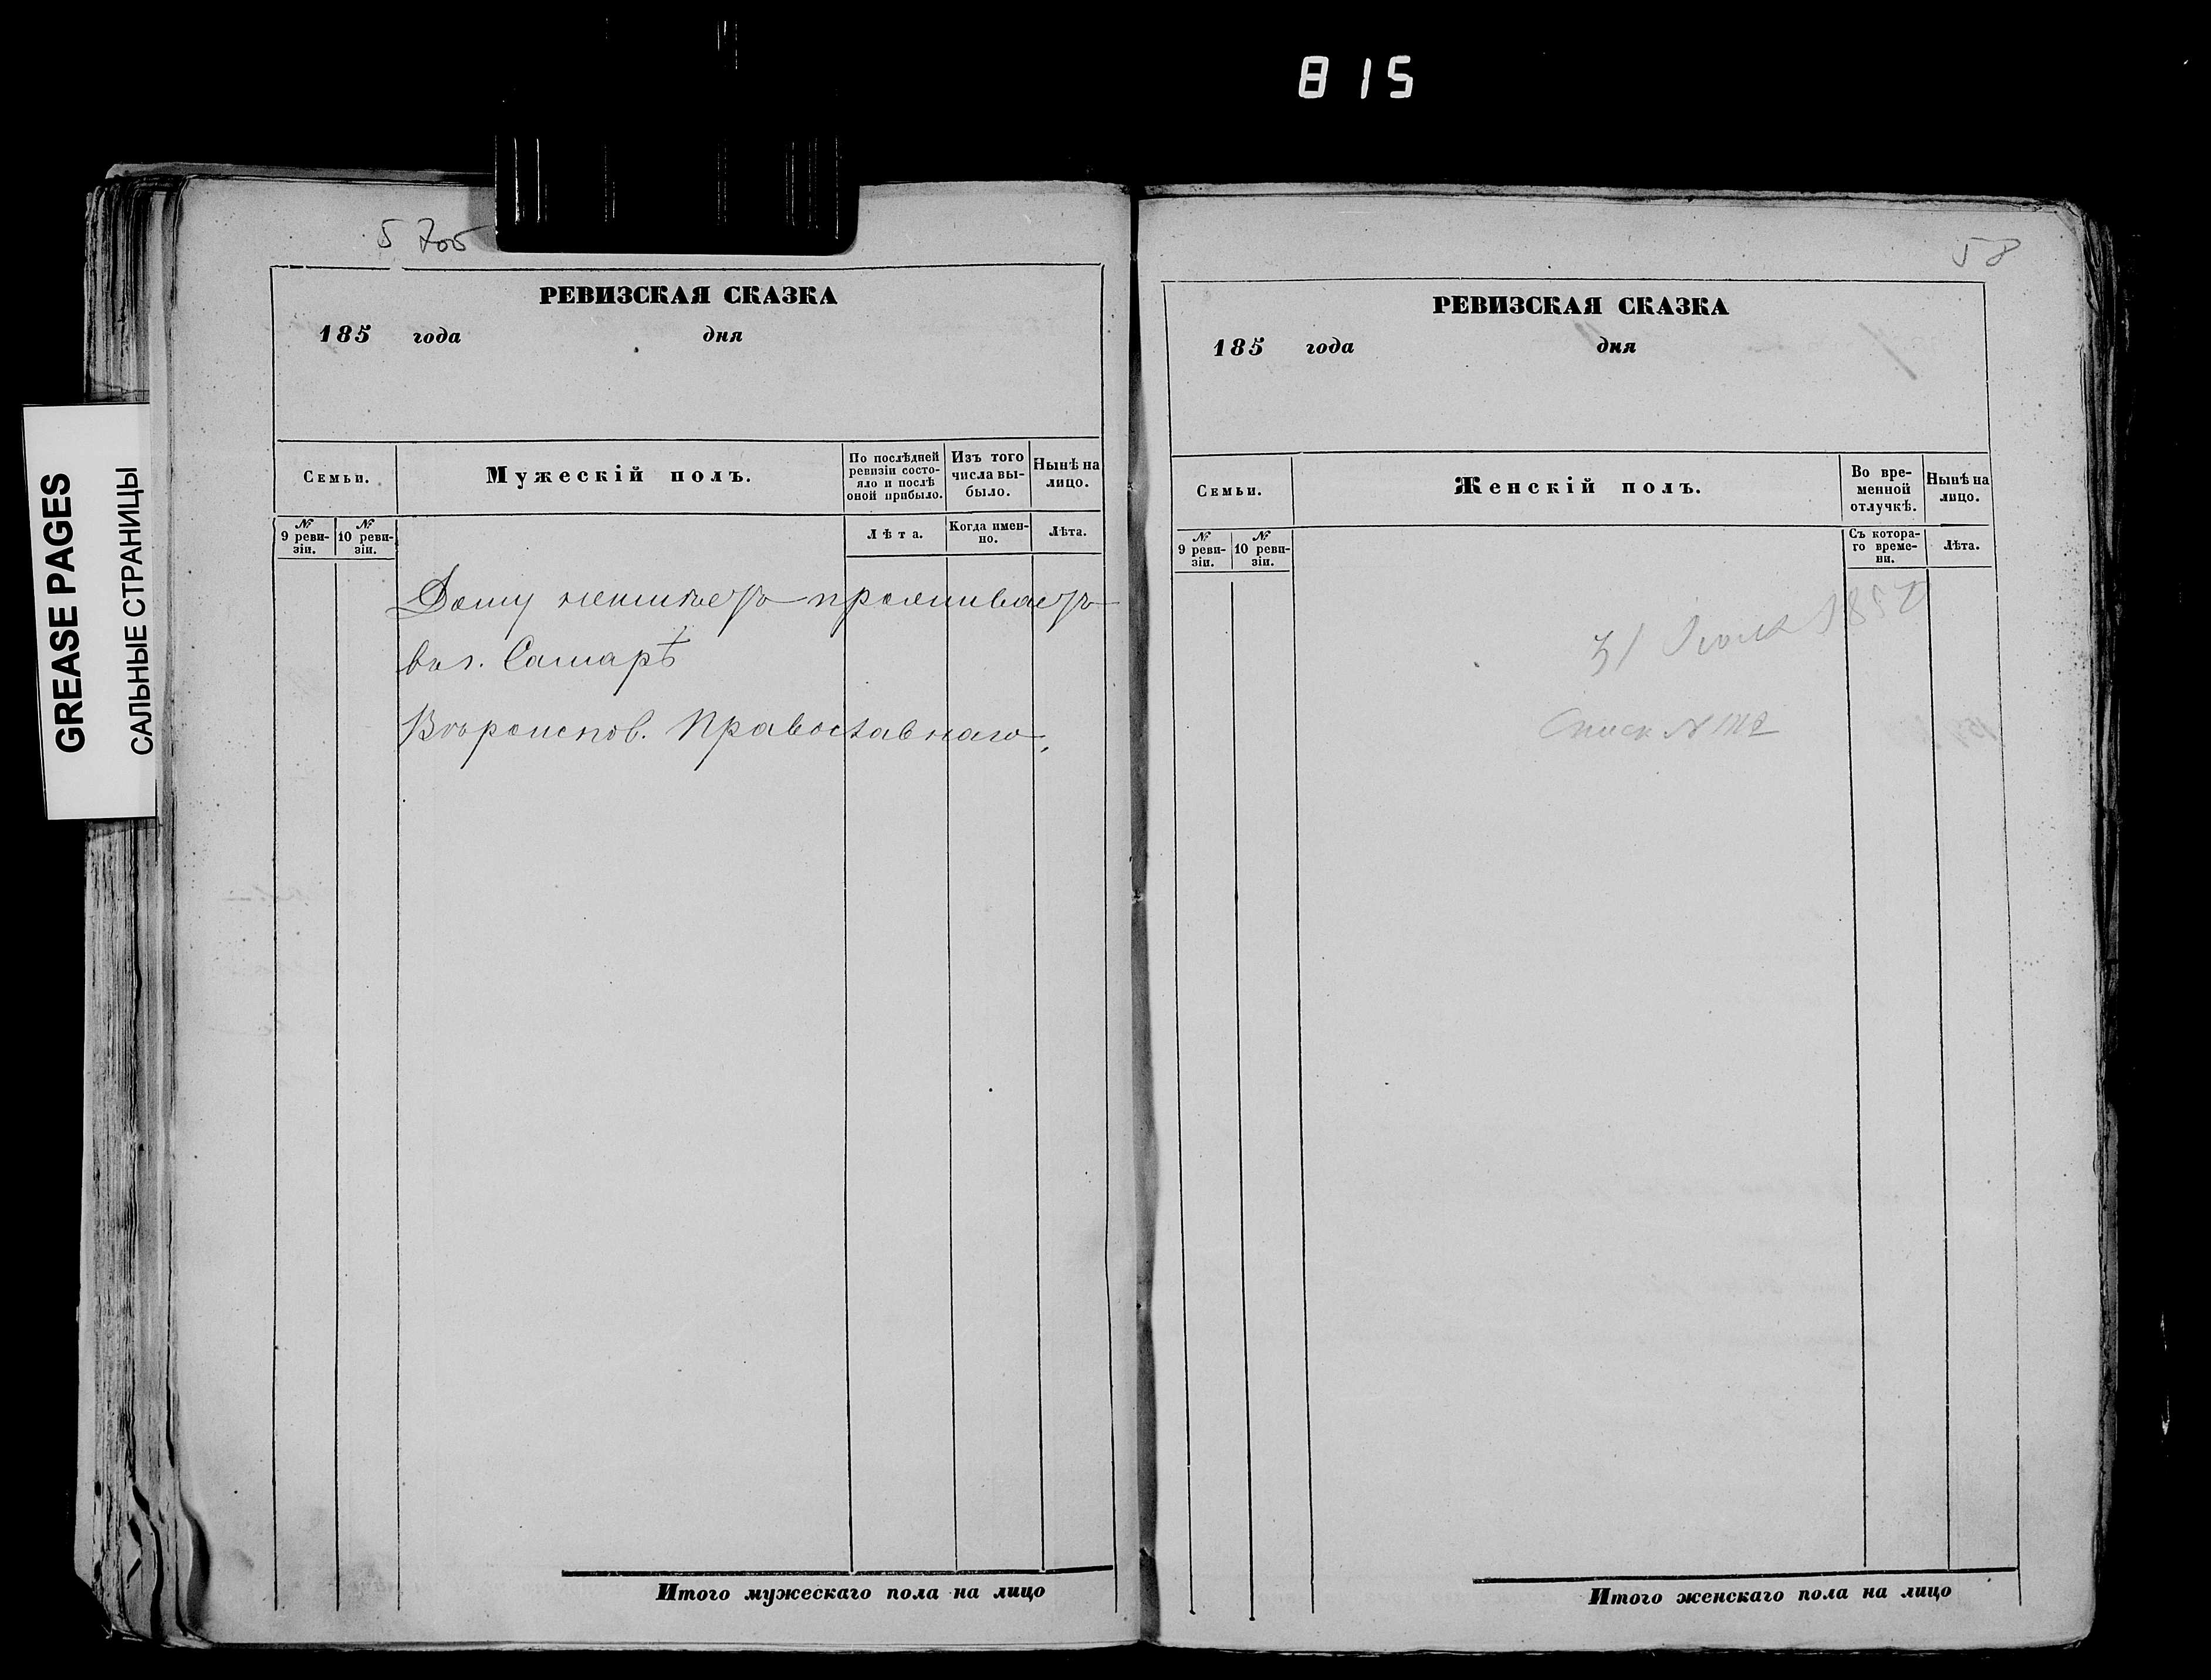 815
GREASE PAGES
САЛЬНЫЕ СТРАНИЦЫ
5 705
РЕВИЗСКАЯ СКАЗКА
185 года дня
Семьи.
Мужескій полъ.
По послѣдней ревизіи состо-
яло и послѣ
оной прибыло.
Изъ того
числа вы-
было.
Нынѣ на
лицо.
№
9 реви-
зіи.
№
10 реви-
зіи.
Лѣта.
Когда имен-
но.
Лѣта.
Дому неимѣетъ проживаетъ
въ г. Самарѣ
Вѣроиспов. Православнаго.
Итого мужескаго пола на лицо
58
РЕВИЗСКАЯ СКАЗКА
185 года дня
Семьи.
Женскій полъ.
Во вре-
менной
отлучкѣ.
Нынѣ на
лицо.
№
9 реви-
зіи.
№
10 реви-
зіи.
Съ котора-
го време-
ни.
Лѣта.
31
Итого женскаго пола на лицо